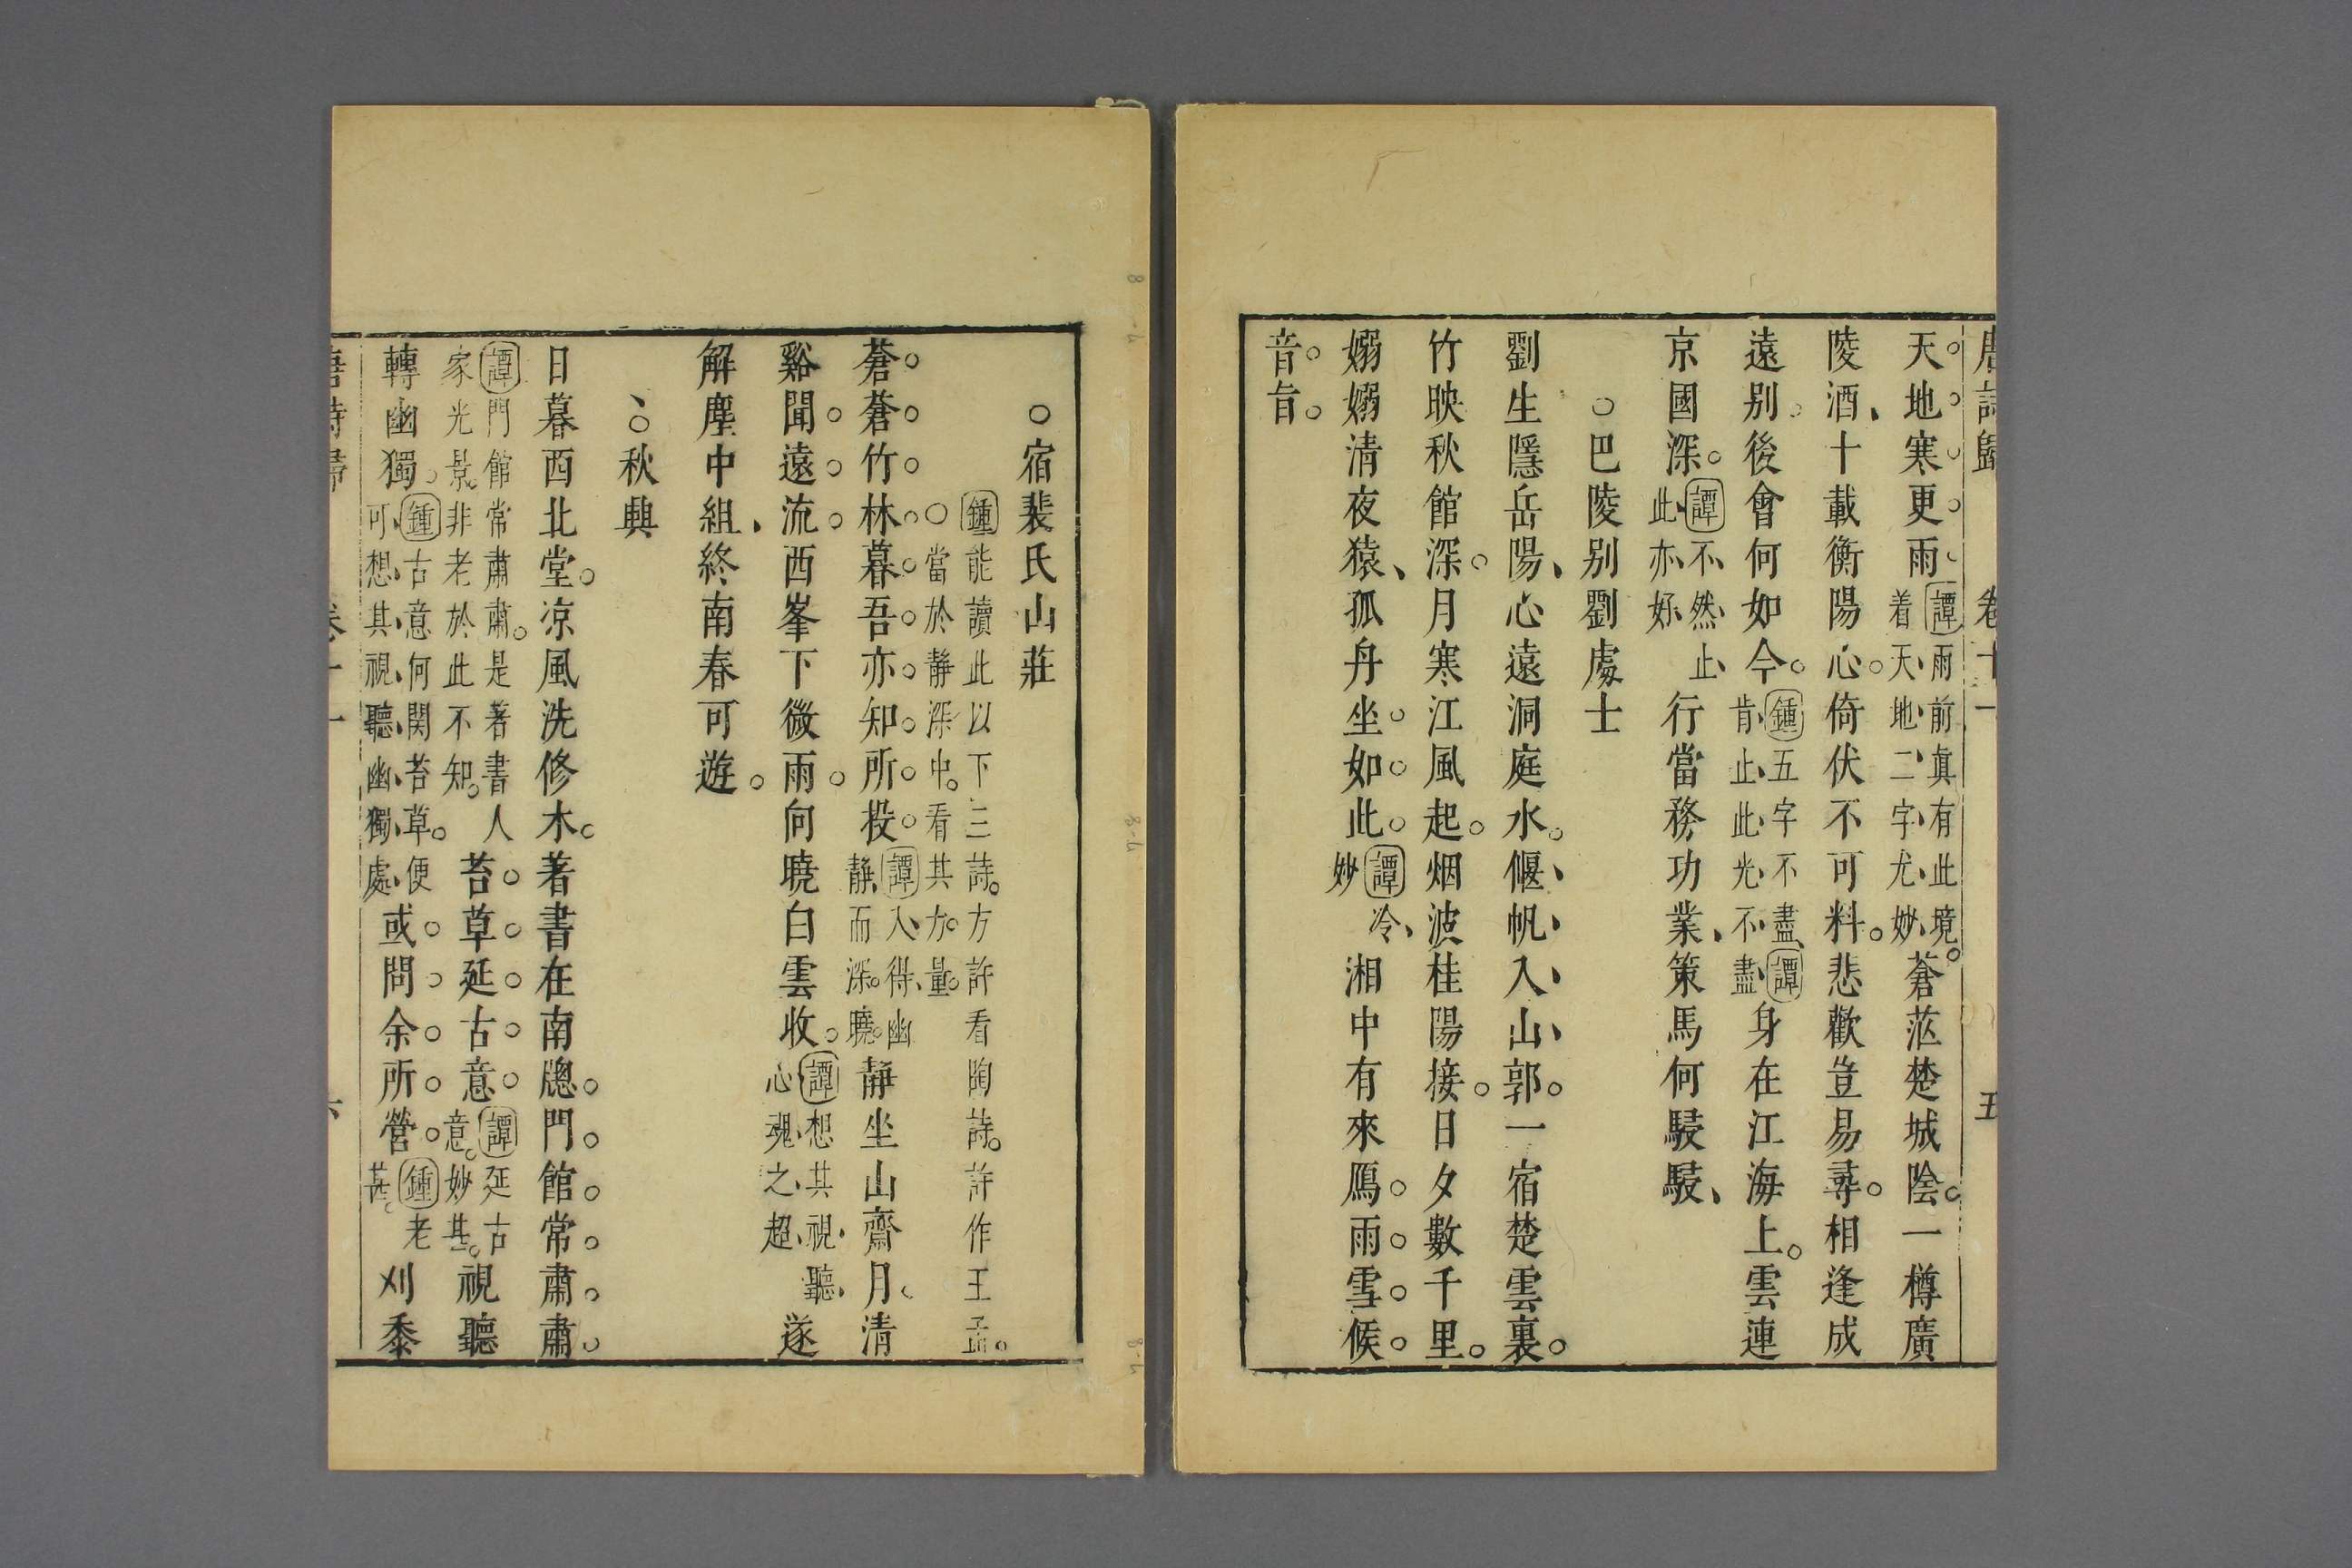 唐詩歸 卷十一 五
天地寒更雨譚雨前真有此境着天地二字尤妙蒼茫楚城陰一樽廣
陵酒十載衡陽心倚伏不可料悲歡豈易尋相逢成
遠别後會何如今鍾五字不盡譚肯止此光不盡身在江海上雲連
京國深譚不然止此亦好行當務功業策馬何駸駸
○巴陵别劉處士
劉生隱岳陽心遠洞庭水偃帆入山郭一宿楚雲裏
竹映秋館深月寒江風起烟波桂陽接日夕數千里
嫋嫋清夜猿孤舟坐如此譚冷妙湘中有來鴈雨雪候
音旨
○宿裴氏山莊
鍾能讀此以下三詩方許看陶詩許作王孟
○當於靜深中看其力量
蒼蒼竹林暮吾亦知所投譚入得幽靜而深曉靜坐山齋月清
谿聞遠流西峯下微雨向曉白雲收譚想其視聽心魂之超遂
解塵中組終南春可遊
○秋興
日暮西北堂凉風洗修木著書在南牕門館常肅肅
譚門館常肅肅是著書人家光景非老於此不知苔草延古意譚延古意妙甚視聽
轉幽獨鍾古意何関苔草便可想其視聽幽獨處或問余所營鍾老甚刈黍
唐詩歸 卷十一 六